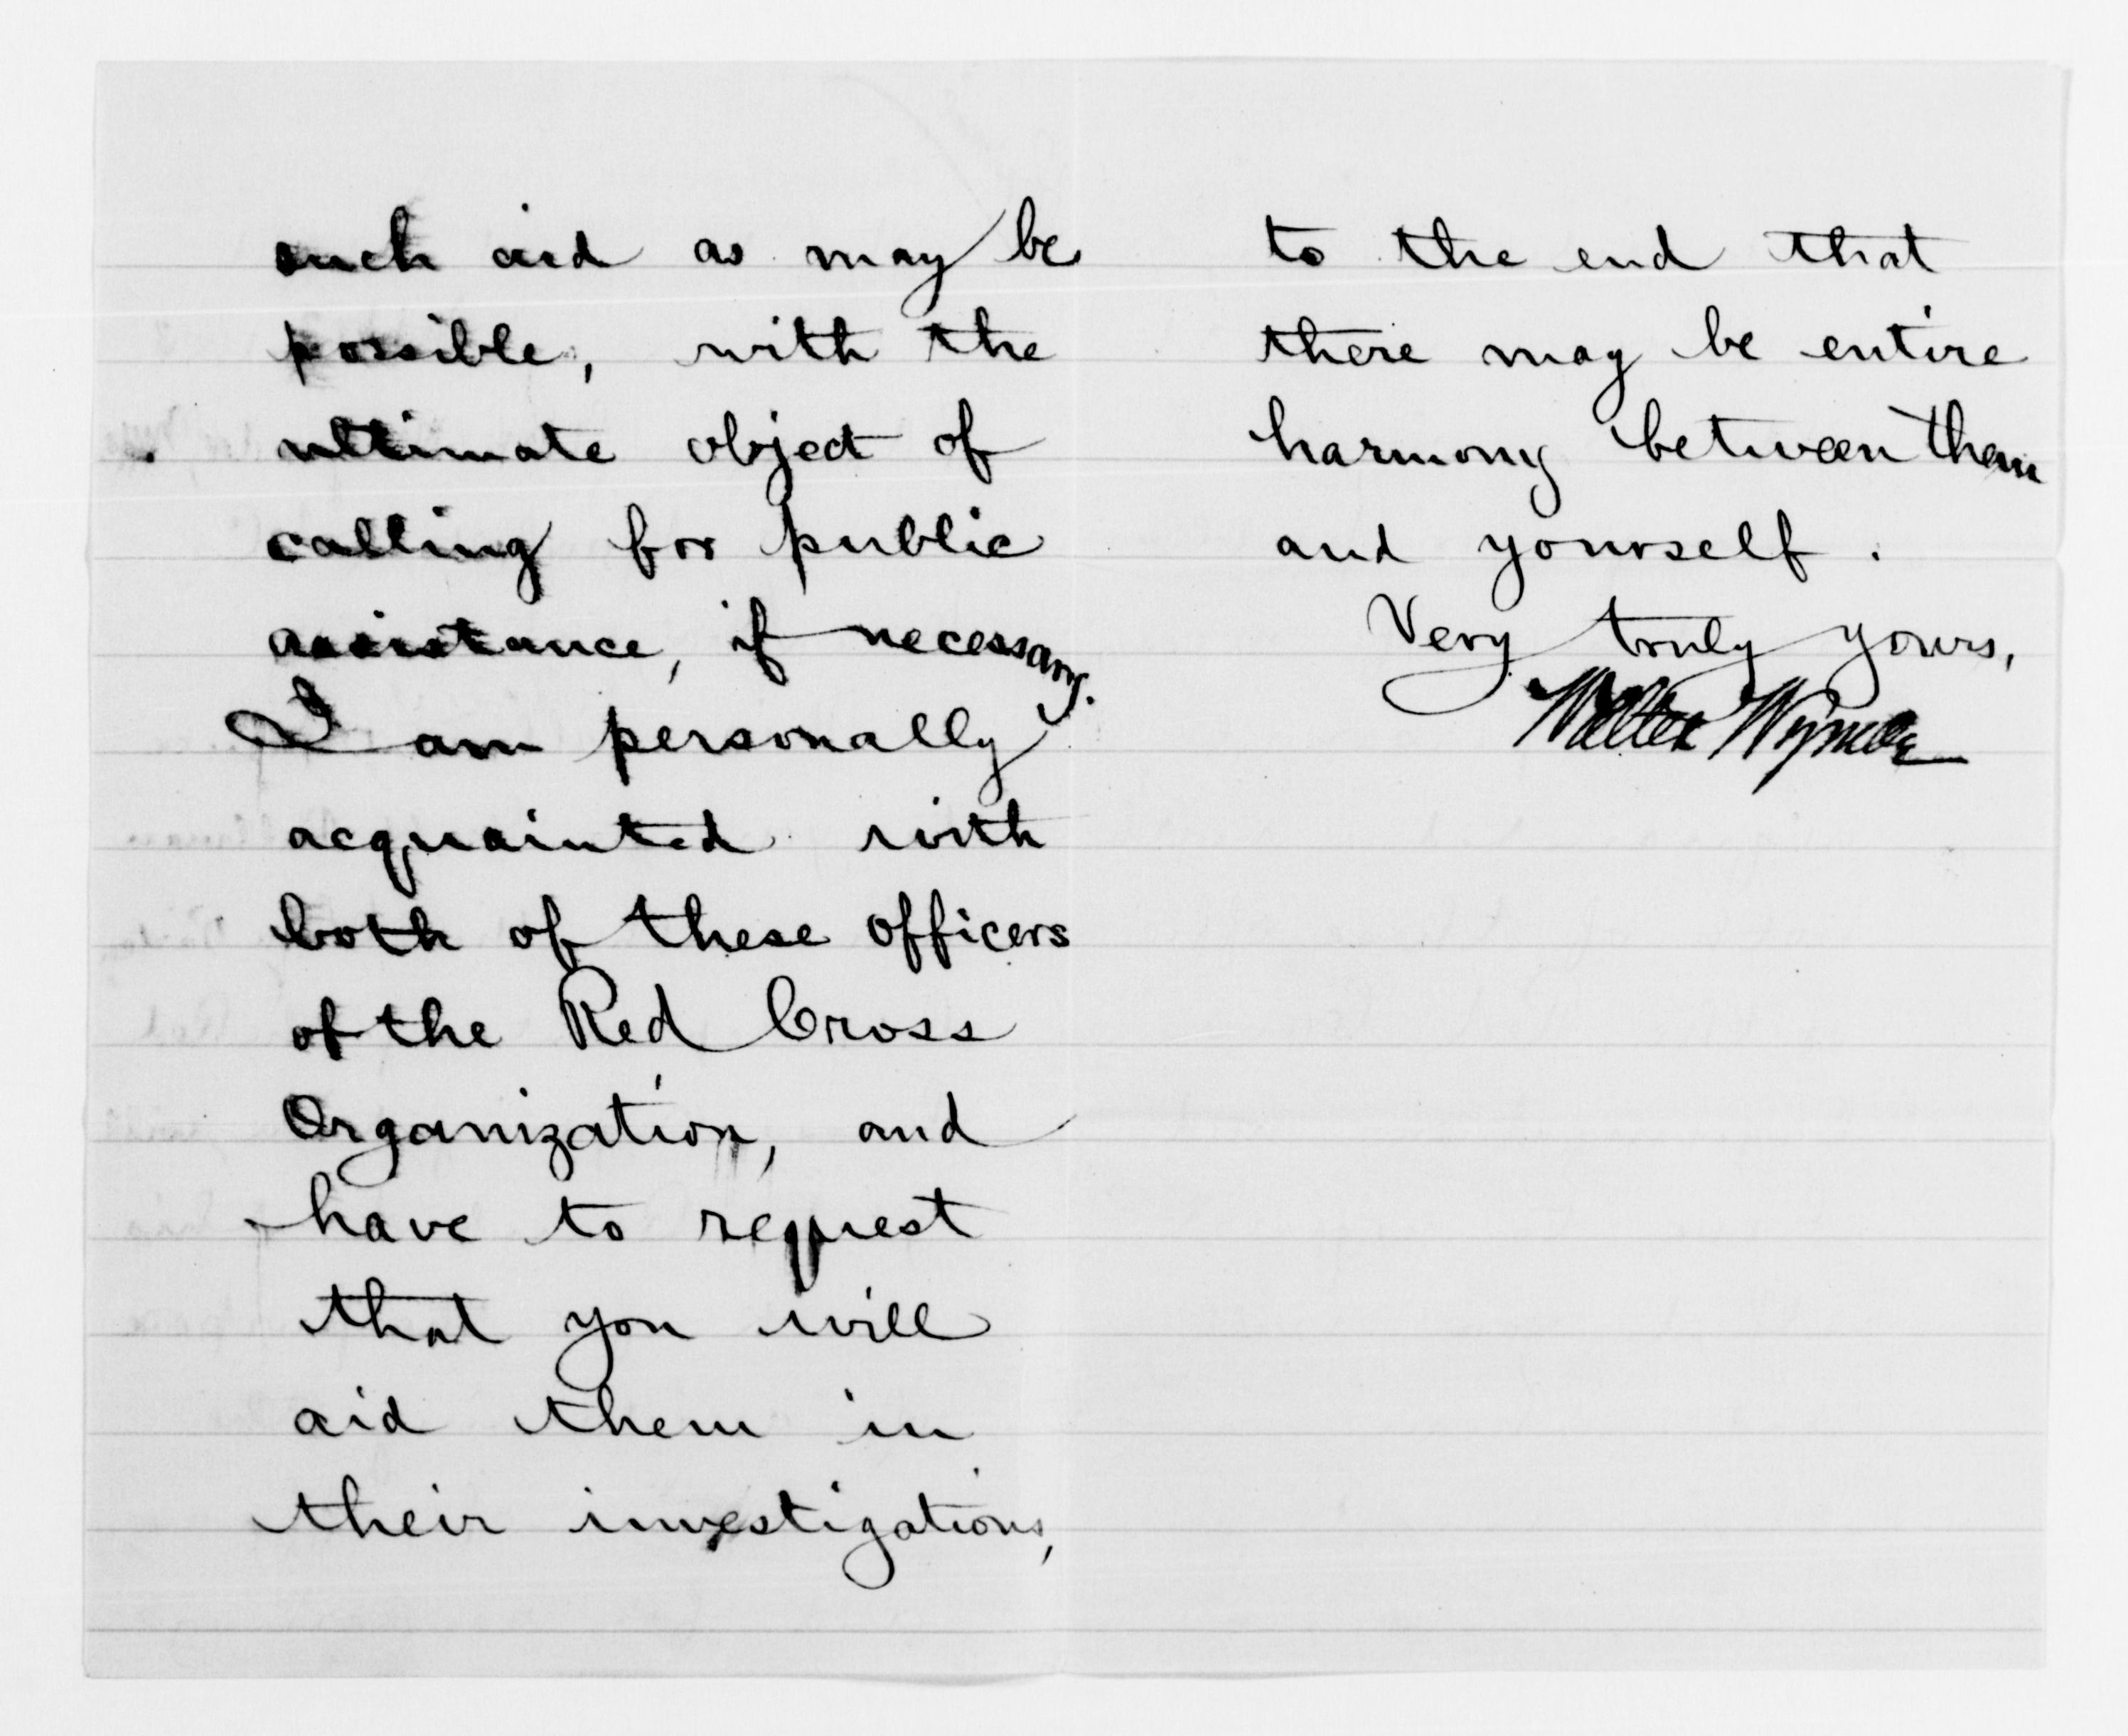 such aid as may be
possible, with the
ultimate object of
calling for public
assistance, if necessary.
I am personally
acquainted with
both of these officers
of the Red Cross
Organization, and
have to request
that you will
aid them in
their investigations,
to the end that
there may be entire
harmony between them
and yourself.
Very truly yours,
Walter Wyman